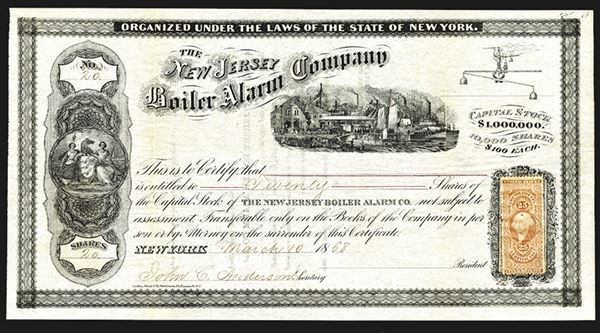 ORGANIZED UNDER THE LAWS OF THE STATE OF NEW YORK.
No.
20.
THE
NEW JERSEY
Boiler Alarm Company
CAPITAL STOCK
$1,000,000.
10,000 SHARES
$100 EACH.
This is to Certify that
is entitled to Twenty Shares of
the Capital Stock of THE NEW JERSEY BOILER ALARM CO. not subject to
assessment Transferable only on the Books of the Company in per
son or by Attorney on the surrender of this Certificate.
SHARES
20.
NEW YORK March 10 1868
President
John C. Anderson Secretary
25
25